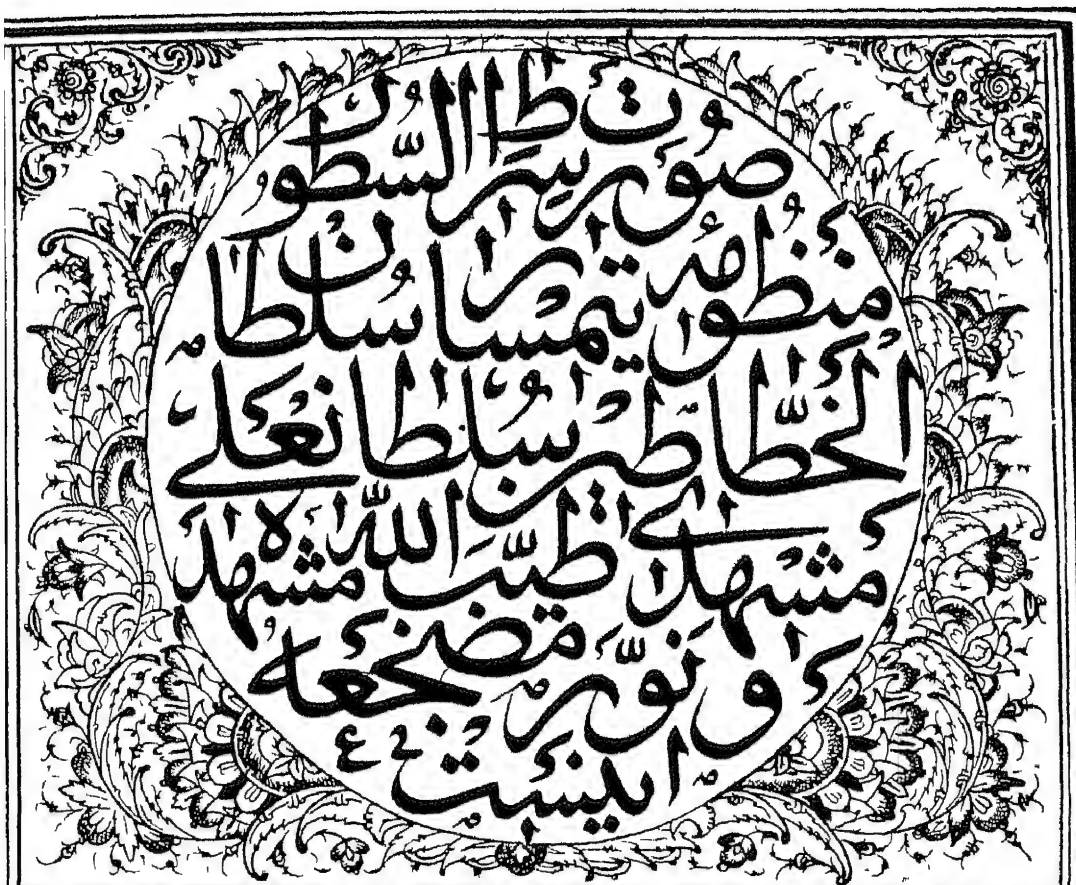 صُورَت سِراطِ السّطور
منظومهٔ سُلطان
الخطّاطین سُلطانعَلی
مشهدی طیَّبَ اللّه مشهدَه
و نَوَّر مضجعه
اینست